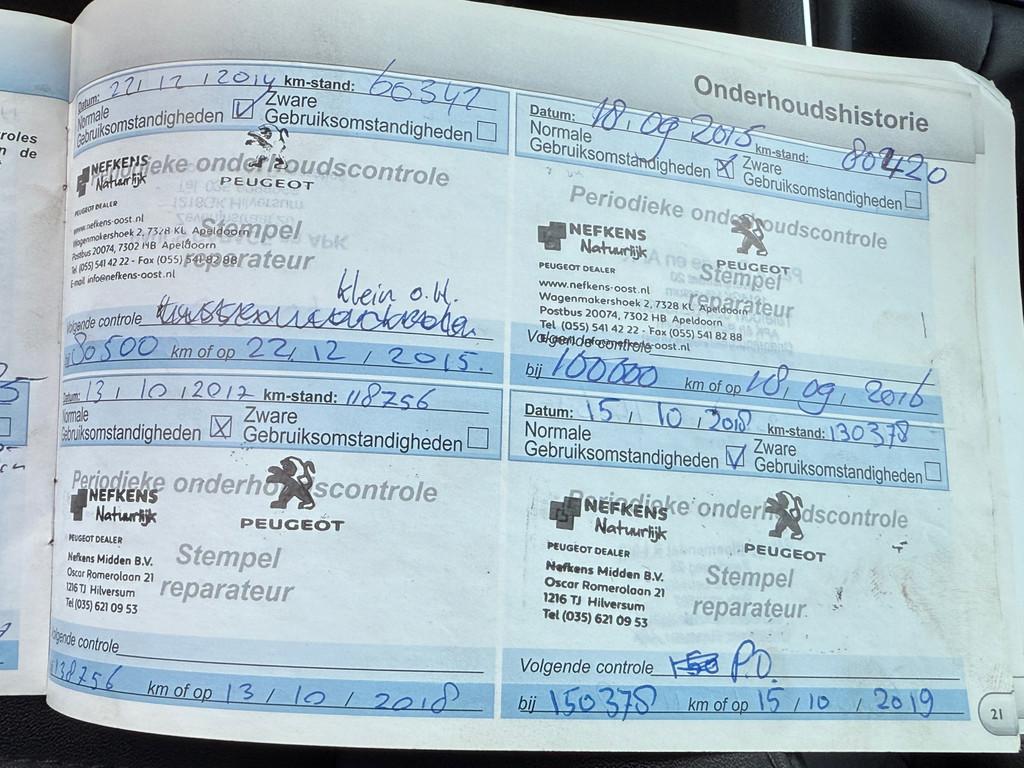 Onderhoudshistorie
Datum: 22 / 12 / 2014 km-stand: 60342
Normale Gebruiksomstandigheden
Zware Gebruiksomstandigheden
Periodieke onderhoudscontrole
NEFKENS
Natuurlijk
PEUGEOT
PEUGEOT DEALER
Stempel
reparateur
www.nefkens-oost.nl
Wagenmakershoek 2, 7328 KL Apeldoorn
Postbus 20074, 7302 HB Apeldoorn
Tel (055) 541 42 22 - Fax (055) 541 82 88
E-mail info@nefkens-oost.nl
klein o.H.
Volgende controle
80500 km of op 22 / 12 / 2015.
Datum: 18, 09 2015 km-stand: 80420
Normale Gebruiksomstandigheden
Zware Gebruiksomstandigheden
Periodieke onderhoudscontrole
NEFKENS
Natuurlijk
PEUGEOT
PEUGEOT DEALER
Stempel
reparateur
www.nefkens-oost.nl
Wagenmakershoek 2, 7328 KL Apeldoorn
Postbus 20074, 7302 HB Apeldoorn
Tel (055) 541 42 22 - Fax (055) 541 82 88
E-mail info@nefkens-oost.nl
Volgende controle
bij 100000 km of op 18, 09, 2016
Datum: 13 / 10 / 2017 km-stand: 118756
Normale Gebruiksomstandigheden
Zware Gebruiksomstandigheden
Periodieke onderhoudscontrole
NEFKENS
Natuurlijk
PEUGEOT
PEUGEOT DEALER
Stempel
reparateur
Nefkens Midden B.V.
Oscar Romerolaan 21
1216 TJ Hilversum
Tel (035) 621 09 53
Volgende controle
138756 km of op 13 / 10 / 2018
Datum: 15 / 10 / 2018 km-stand: 130378
Normale Gebruiksomstandigheden
Zware Gebruiksomstandigheden
Periodieke onderhoudscontrole
NEFKENS
Natuurlijk
PEUGEOT
PEUGEOT DEALER
Stempel
reparateur
Nefkens Midden B.V.
Oscar Romerolaan 21
1216 TJ Hilversum
Tel (035) 621 09 53
Volgende controle P.O.
bij 150378 km of op 15 / 10 / 2019
21